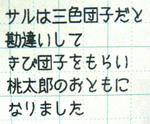 サルは三色団子だと
勘違いして
きび団子をもらい
桃太郎のおともに
なりました